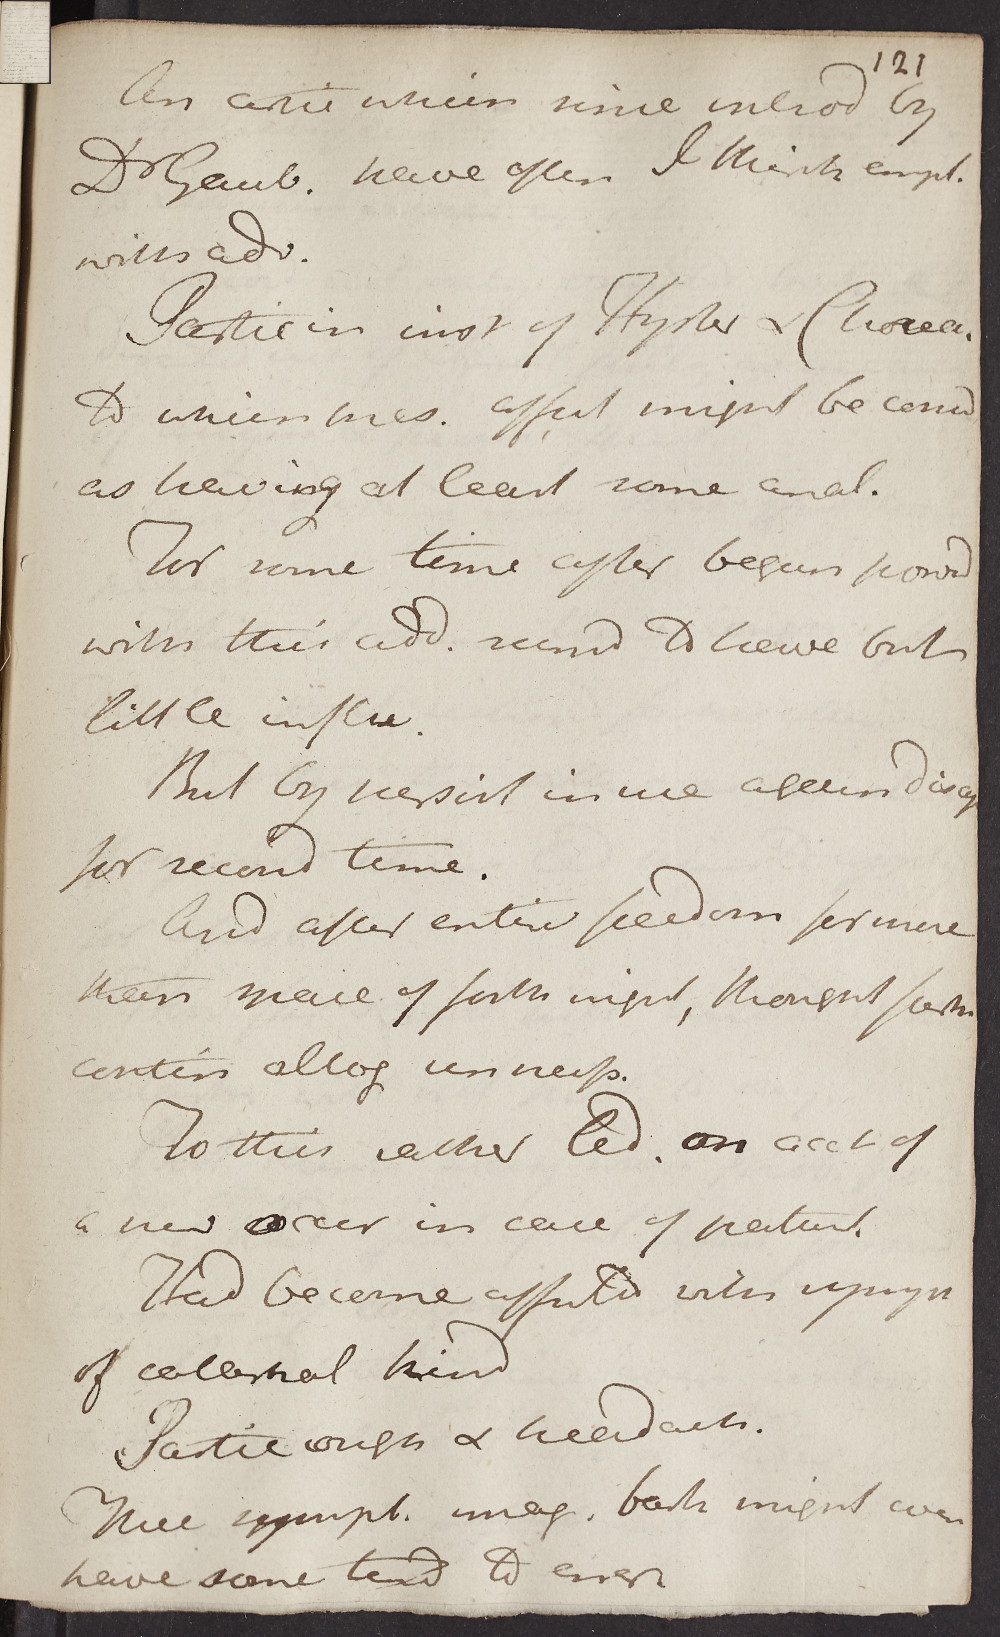 121
An artic which since introd by
Dr Gaub. have often I think empl.
with adv.
Partic in inst of Hyster & Chorea.
To which pres. affect might be consid
as having at least some anal.
For some time after begun powd
with this add. seemd to have but
little influ.
But by persist in use again disap
for second time.
And after entire freedom for more
than space of forth night, thought farth
contin altog unness.
To this rather led. on acct of
a new occur in case of patient.
Had become affected with sympt
of catarrhal kind
Partic cough & headach.
These sympt. imag. bark might even
have some tend to encr